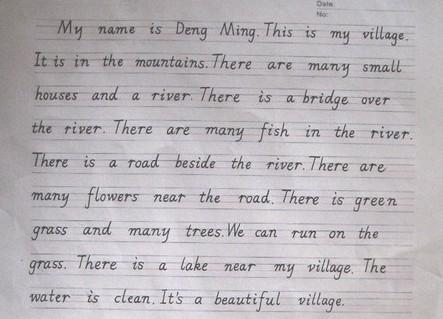 Date
No:
My name is Deng Ming. This is my village.
It is in the mountains. There are many small
houses and a river. There is a bridge over
the river. There are many fish in the river.
There is a road beside the river. There are
many flowers near the road. There is green
grass and many trees. We can run on the
grass. There is a lake near my village. The
water is clean. It's a beautiful village.